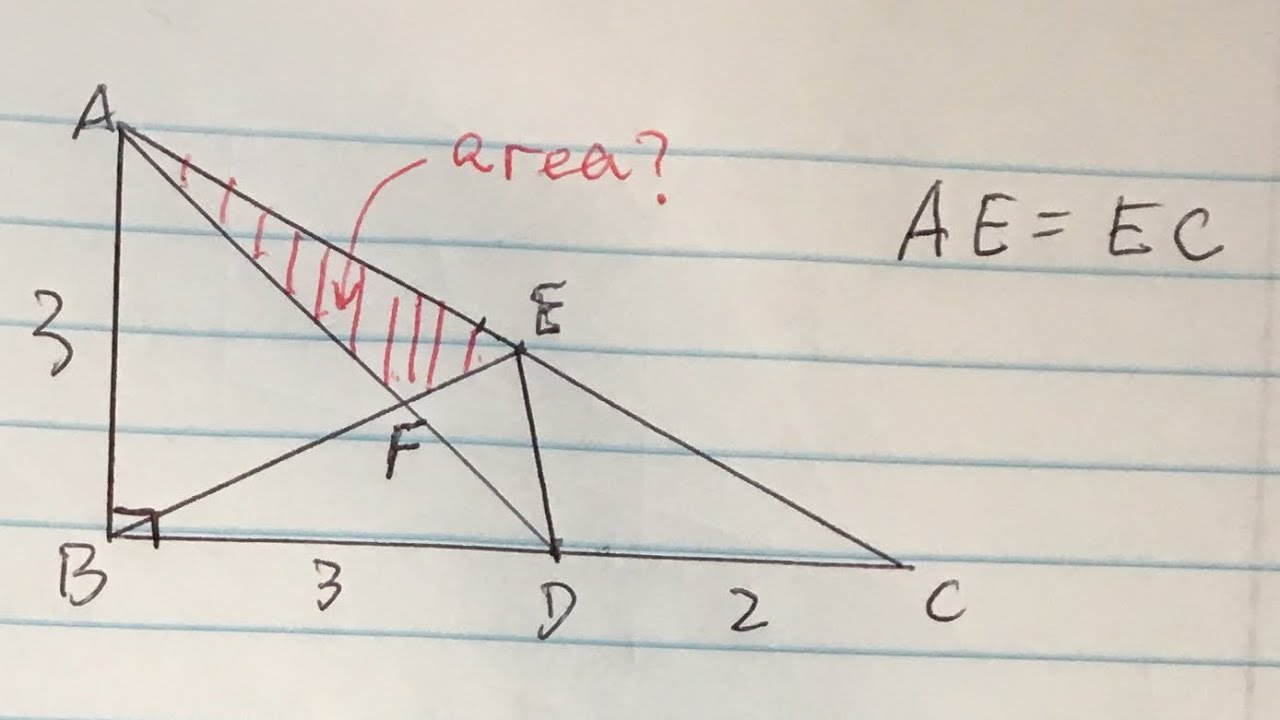 A
area?
AE = EC
E
3
F
B
3
D
2
C